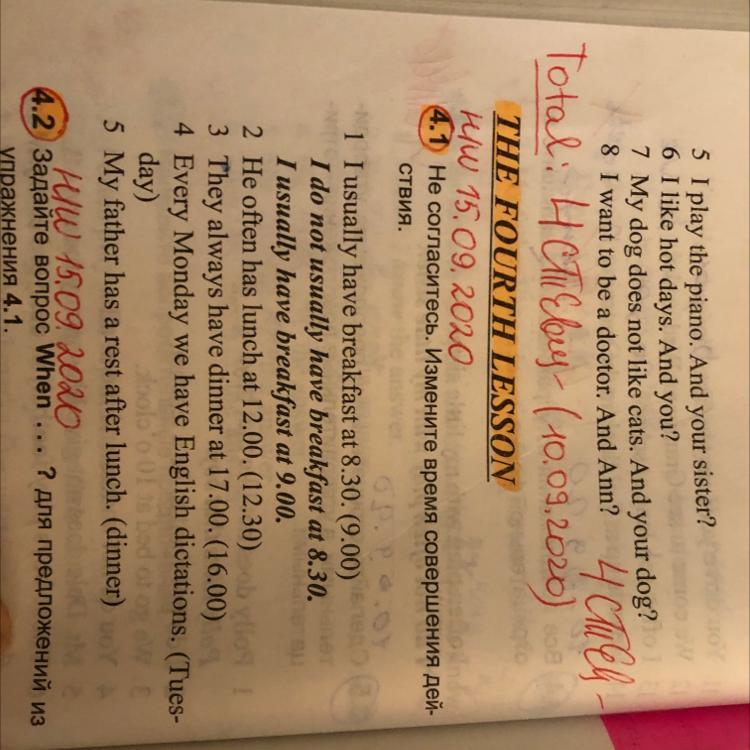 5 I play the piano. And your sister?
6 I like hot days. And you?
7 My dog does not like cats. And your dog?
8 I want to be a doctor. And Ann?
Total: (10.09.2020)
THE FOURTH LESSON
H/W 15.09.2020
4.1 Не согласитесь. Измените время совершения дей-
ствия.
1 I usually have breakfast at 8.30. (9.00)
I do not usually have breakfast at 8.30.
I usually have breakfast at 9.00.
2 He often has lunch at 12.00. (12.30)
3 They always have dinner at 17.00. (16.00)
4 Every Monday we have English dictations. (Tues-
day)
5 My father has a rest after lunch. (dinner)
H/W 15.09.2020
4.2 Задайте вопрос When ... ? для предложений из
упражнения 4.1.